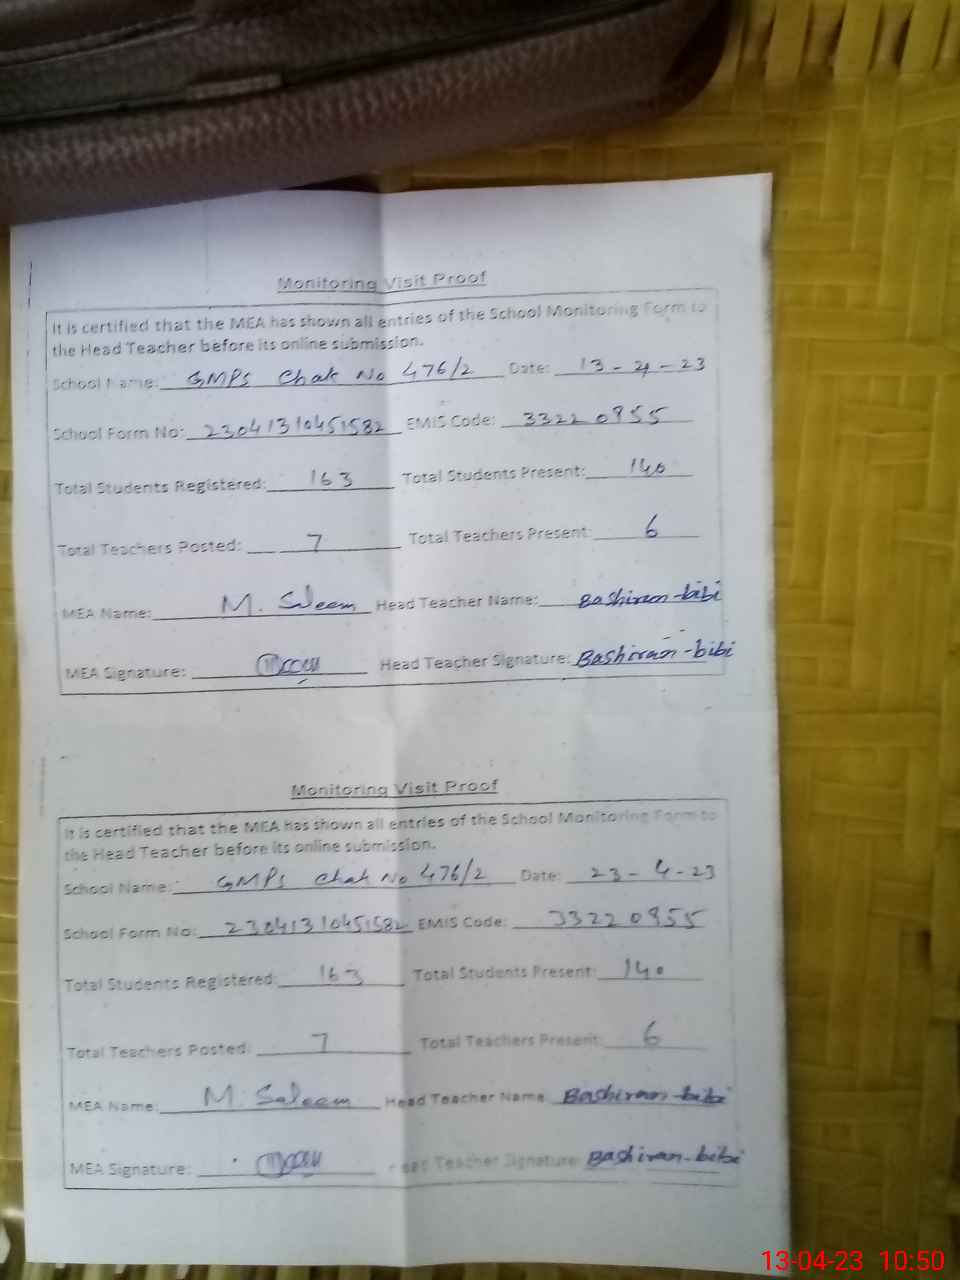 Monitoring Visit Proof
It is certified that the MEA has shown all entries of the School Monitoring Form to
the Head Teacher before its online submission.
School Name: GMPS Chak No 476/2 Date: 13-4-23
School Form No: 23041310451582 EMIS Code: 33220855
Total Students Registered: 163 Total Students Present: 140
Total Teachers Posted: 7 Total Teachers Present: 6
MEA Name: M. Saleem Head Teacher Name: Bashiran-bibi
MEA Signature: Head Teacher Signature: Bashiran-bibi
Monitoring Visit Proof
It is certified that the MEA has shown all entries of the School Monitoring Form to
the Head Teacher before its online submission.
School Name: GMPS Chak No 476/2 Date: 23-4-23
School Form No: 23041310451582 EMIS Code: 33220855
Total Students Registered: 163 Total Students Present: 140
Total Teachers Posted: 7 Total Teachers Present: 6
MEA Name: M. Saleem Head Teacher Name Bashiran-bibi
MEA Signature: Head Teacher Signature: Bashiran-bibi
13-04-23 10:50